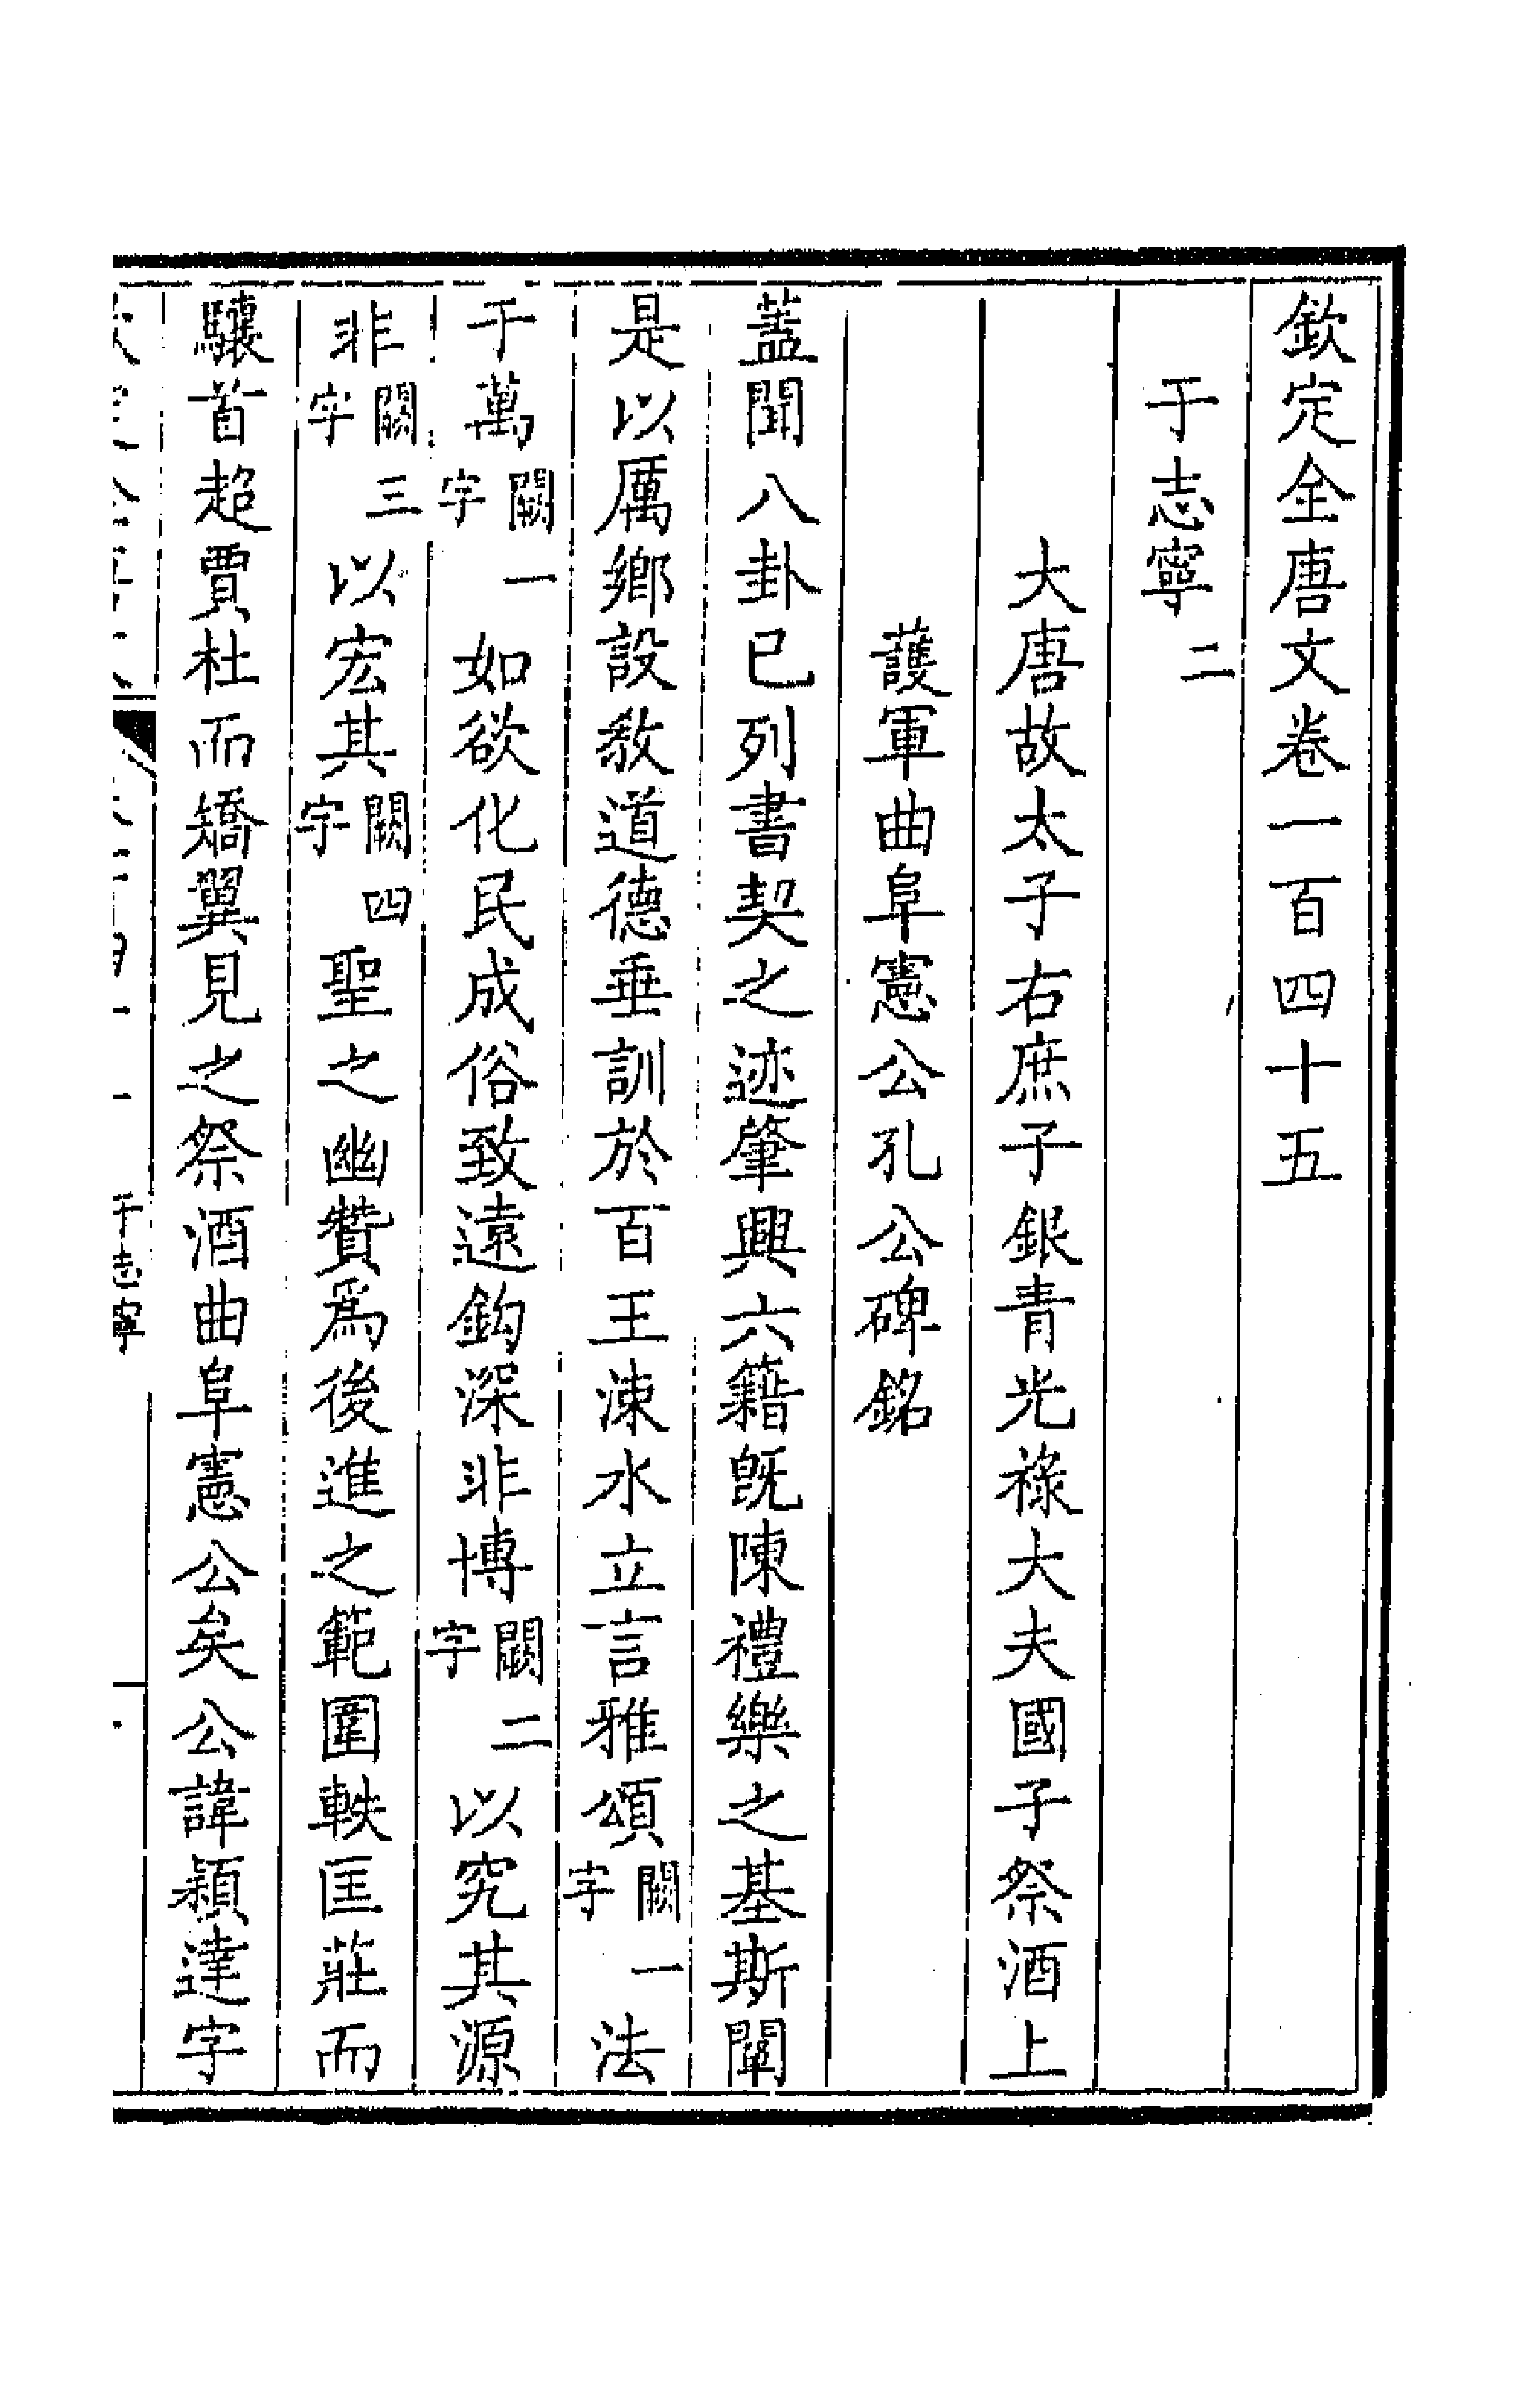 欽定全唐文卷一百四十五
于志寧二
大唐故太子右庶子銀青光祿大夫國子祭酒上
護軍曲阜憲公孔公碑銘
蓋聞八卦已列書契之迹肇興六籍旣陳禮樂之基斯闡
是以厲鄉設教道德垂訓於百王洙水立言雅頌闕一字法
于萬闕一字如欲化民成俗致遠鈎深非博闕二字以究其源
非闕三字以宏其闕四字聖之幽贊爲後進之範圍軼匡莊而
驤首超賈杜而矯翼見之祭酒曲阜憲公矣公諱穎達字
于志寧